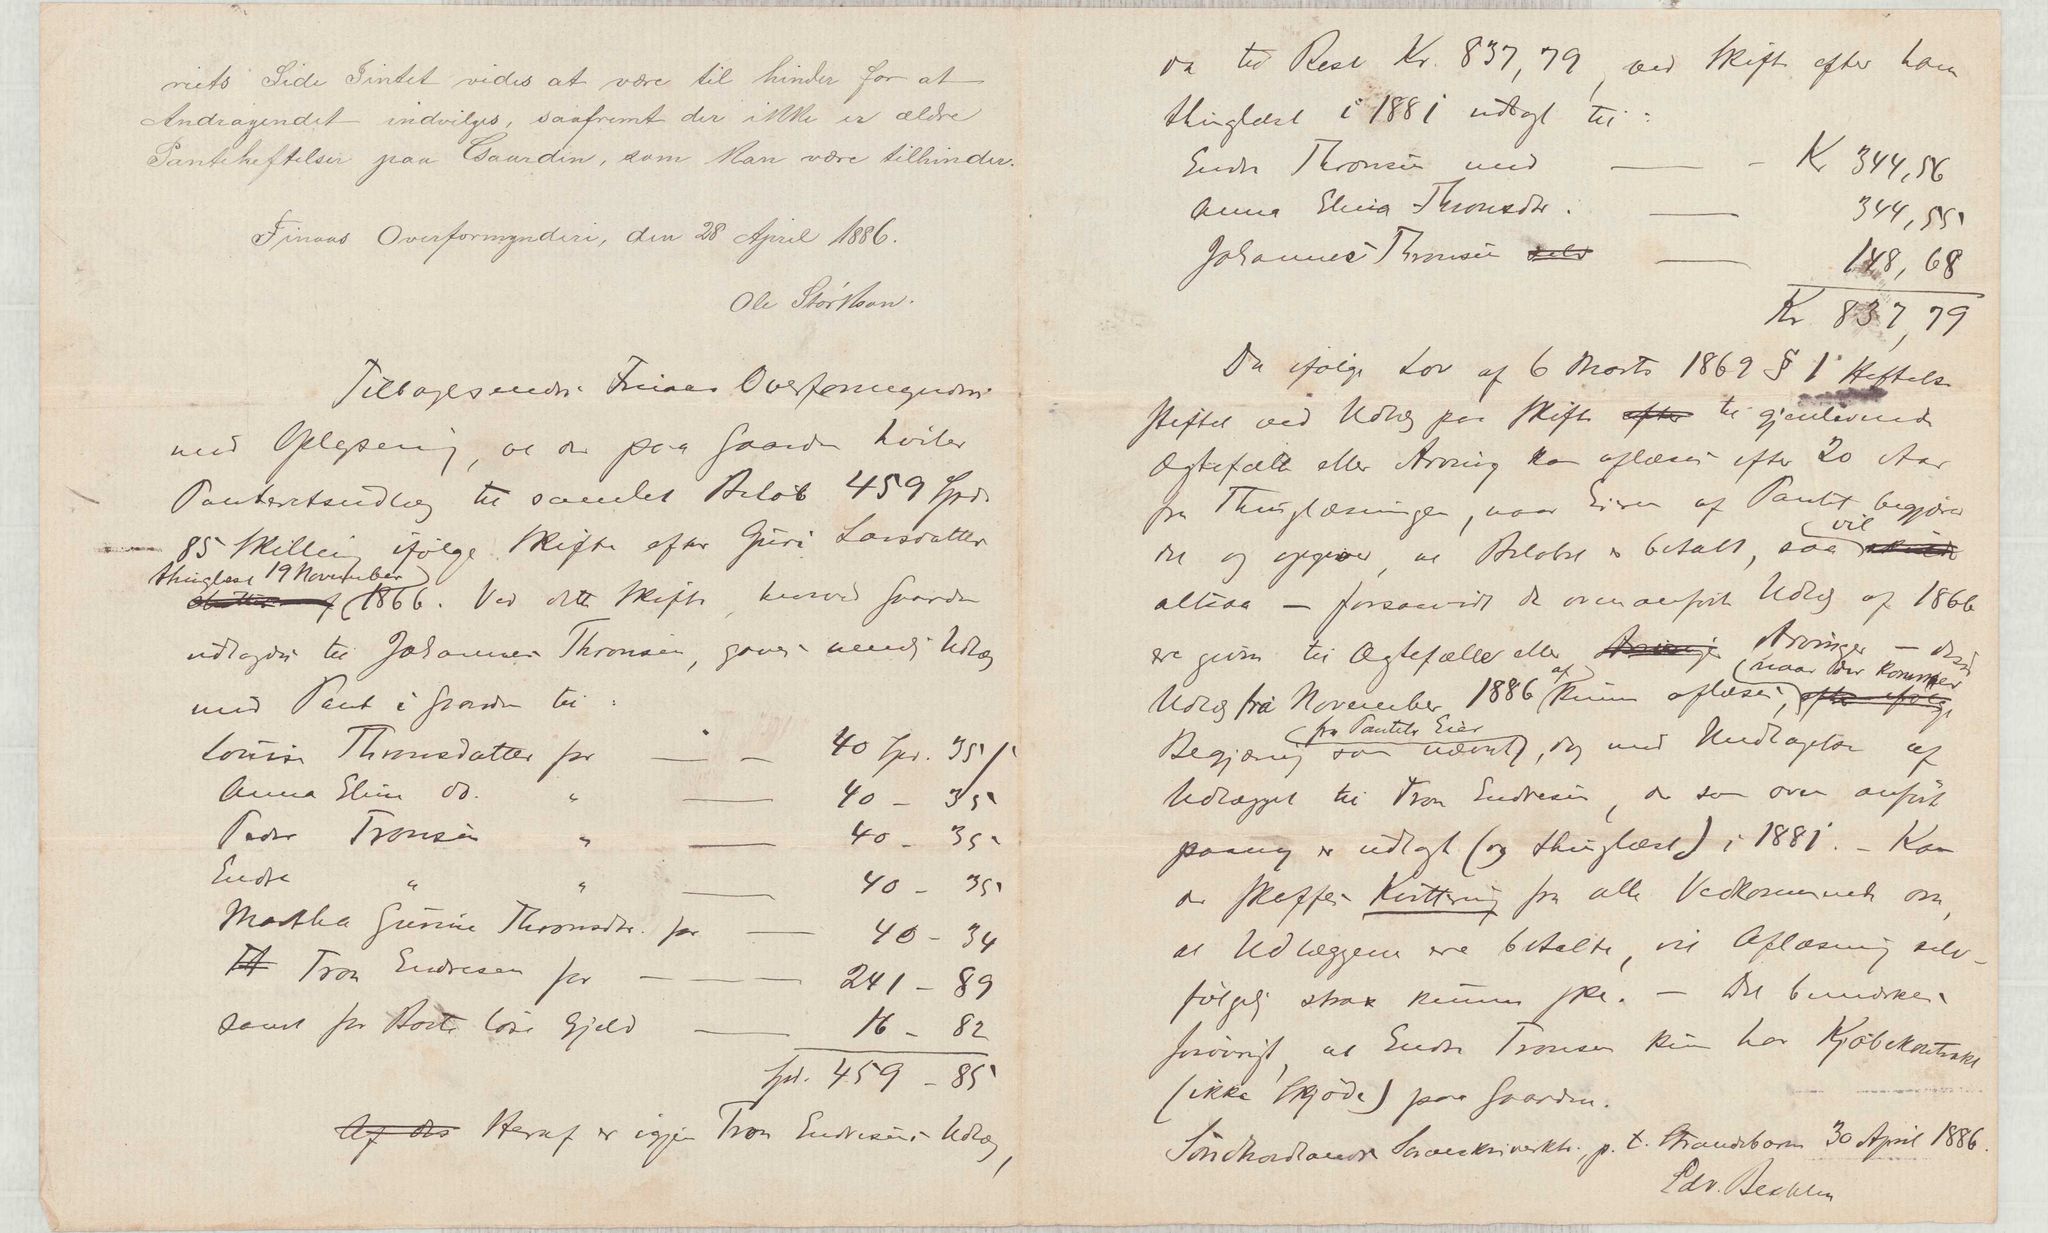 riets Side Intet vides at være til hinder for at
Andragendet indvilges, saafremt der ikke er ældre
Panteheftelser paa Gaarden, som kan være tilhinder.
Finaas Overformynderi, den 28 April 1886.
Ole Størkson.
Tilbagesendes Finaas Overformynderi
med Oplysning, at der paa Gaarden hviler
Panteretsudlæg til samlet Beløb 459 Spd.
85 Skilling ifølge Skifte efter Guri Larsdatter
thinglæst 19 November
1866. Ved dette Skifte, hvorved Gaarden
udlagdes til Johannes Thronsen, gaves nemlig Udlæg
med Pant i Gaarden til:
Lovise Thronsdatter for — 40 Spd. 35 /
Anna Elina do. " — 40 - 35
Peder Tronsen " — 40 - 35
Endre " " — 40 - 35
Martha Gurine Thronsdtr. for — 40 - 34
Tron Endresen for — 241 - 89
samt for Boets løse Gjeld — 16 - 82
Spd. 459 - 85
Af det Heraf er igjen Tron Endresens Udlæg,
da til Rest Kr. 837,79, ved Skifte efter ham
thinglæst i 1881 udlagt til:
Endre Thronsen med — - Kr 344,56
Anna Elina Thronsdtr. — 344,55
Johannes Thronsen selv — 148,68
Kr 837,79
Da ifølge Lov af 6 Marts 1869 § 1 Heftelse
stiftet ved Udlæg paa Skifte efter til gjenlevende
Ægtefælle eller Arving kan aflæses efter 20 Aar
fra Thinglæsningen, naar Eieren af Pantet begjærer
det og opgiver, at Beløbet er betalt, saa vil
altsaa — forsaavidt de ovenanførte Udlæg af 1866
ere givne til Ægtefælle eller Arvinger Arvinger — disse
Udlæg fra November 1886 af kunne aflæses, naar der kommer efter ifølge
Begjæring fra Pantets Eier som nævnt, dog med Undtagelse af
Udlægget til Tron Endresen, der som oven anført
paany er udlagt (og thinglæst) i 1881. — Kan
der skaffes Kvittering fra alle Vedkommende om,
at Udlæggene ere betalte, vil Aflæsning selv-
følgelig strax kunne ske. — Det bemærkes
forøvrigt, at Endre Tronsen kun har Kjøbekontrakt
(ikke Skjøde) paa Gaarden.
Søndhordlands Sorenskriverktr., p. t. Strandebarm 30 April 1886.